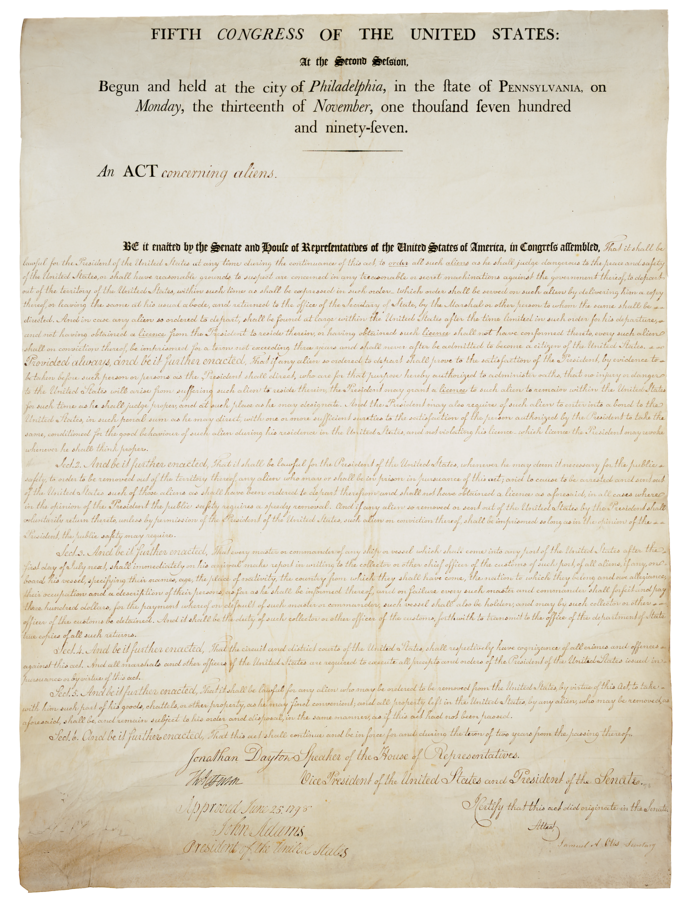 FIFTH CONGRESS OF THE UNITED STATES:
At the Second Session,
Begun and held at the city of Philadelphia, in the ſtate of PENNSYLVANIA, on
Monday, the thirteenth of November, one thouſand ſeven hundred
and ninety-ſeven.
An ACT concerning aliens.
BE it enacted by the Senate and Houſe of Repreſentatives of the United States of America, in Congreſs aſſembled, That it shall be
lawful for the President of the United States at any time during the continuance of this act, to order all such aliens as he shall judge dangerous to the peace and safety
of the United States, or shall have reasonable grounds to suspect are concerned in any treasonable or secret machinations against the government thereof, to depart
out of the territory of the United States, within such time as shall be expressed in such order, which order shall be served on such alien by delivering him a copy
thereof or leaving the same at his usual abode, and returned to the office of the Secretary of State, by the Marshal or other person to whom the same shall be
directed. And in case any alien so ordered to depart, shall be found at large within the United States after the time limited in such order for his departure,
and not having obtained a licence from the President to reside therein, or having obtained such licence shall not have conformed thereto, every such alien
shall on conviction thereof, be imprisoned for a term not exceeding three years and shall never after be admitted to become a citizen of the United States.
Provided always, and be it further enacted, That if any alien so ordered to depart shall prove to the satisfaction of the President, by evidence to
be taken before such person or persons as the President shall direct, who are for that purpose hereby authorized to administer oaths, that no injury or danger
to the United States will arise from suffering such alien to reside therein, the President may grant a licence to such alien to remain within the United States
for such time as he shall judge proper, and at such place as he may designate. And the President may also require of such alien to enter into a bond to the
United States, in such penal sum as he may direct, with one or more sufficient sureties to the satisfaction of the person authorized by the President to take the
same, conditioned for the good behaviour of such alien during his residence in the United States, and not violating his licence, which licence the President may revoke
whenever he shall think proper.
Sect. 2. And be it further enacted, That it shall be lawful for the President of the United States, whenever he may deem it necessary for the public
safety, to order to be removed out of the territory thereof, any alien who may or shall be in prison in pursuance of this act; and to cause to be arrested and sent out
of the United States such of those aliens as shall have been ordered to depart therefrom and shall not have obtained a licence as aforesaid, in all cases where
in the opinion of the President, the public safety requires a speedy removal. And if any alien so removed or sent out of the United States by the President shall
voluntarily return thereto, unless by permission of the President of the United States, such alien on conviction thereof, shall be imprisoned so long as in the opinion of the
President the public safety may require.
Sect. 3. And be it further enacted, That every master or commander of any ship or vessel which shall come into any port of the United States after the
first day of July next, shall immediately on his arrival make report in writing to the collector or other chief officer of the customs of such port, of all aliens, if any, on
board his vessel, specifying their names, age, the place of nativity, the country from which they shall have come, the nation to which they belong and owe allegiance,
their occupation and a description of their persons, as far as he shall be informed thereof, and on failure every such master and commander shall forfeit and pay
three hundred dollars, for the payment whereof on default of such master or commander, such vessel shall also be holden, and may by such collector or other
officer of the customs be detained. And it shall be the duty of such collector or other officer of the customs, forthwith to transmit to the office of the department of State
true copies of all such returns.
Sect. 4. And be it further enacted, That the circuit and district courts of the United States, shall respectively have cognizance of all crimes and offences
against this act. And all marshals and other officers of the United States are required to execute all precepts and orders of the President of the United States issued in
pursuance or by virtue of this act.
Sect. 5. And be it further enacted, That it shall be lawful for any alien who may be ordered to be removed from the United States, by virtue of this Act, to take
with him such part of his goods, chattels, or other property, as he may find convenient; and all property left in the United States by any alien, who may be removed, as
aforesaid, shall be, and remain subject to his order and disposal, in the same manner, as if this act had not been passed.
Sect. 6. And be it further enacted, That this act shall continue and be in force for and during the term of two years from the passing thereof.
Jonathan Dayton Speaker of the House of Representatives.
Th Jefferson Vice President of the United States and President of the Senate.
Approved June 25, 1798
John Adams
President of the United States
I Certify that this act did originate in the Senate
Attest,
Samuel A. Otis Secretary